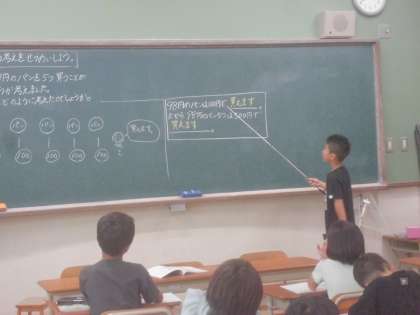 考えをせつめいしよう。
円のパンを5つ買うことが
考えました。
どのように考えたのでしょうか。
パン パン パン パン
100 100 100 100
買えます。
98円のパンは100円で買えます。
だから 98円のパン5つは500円で
買えます